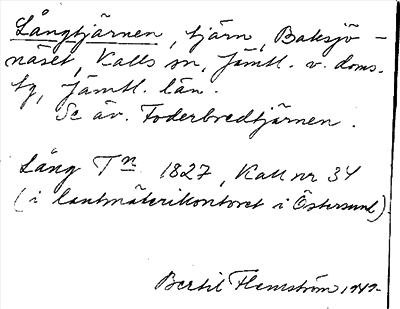 Långtjärnen, tjärn, Baksjö-
näset, Kalls sn, Jämtl. v. doms.
tg, Jämtl. län.
Se äv. Foderbredtjärnen.
Lång Tn 1827, Kall nr 34
(i lantmäterikontoret i Östersund)
Bertil Flemström 1942